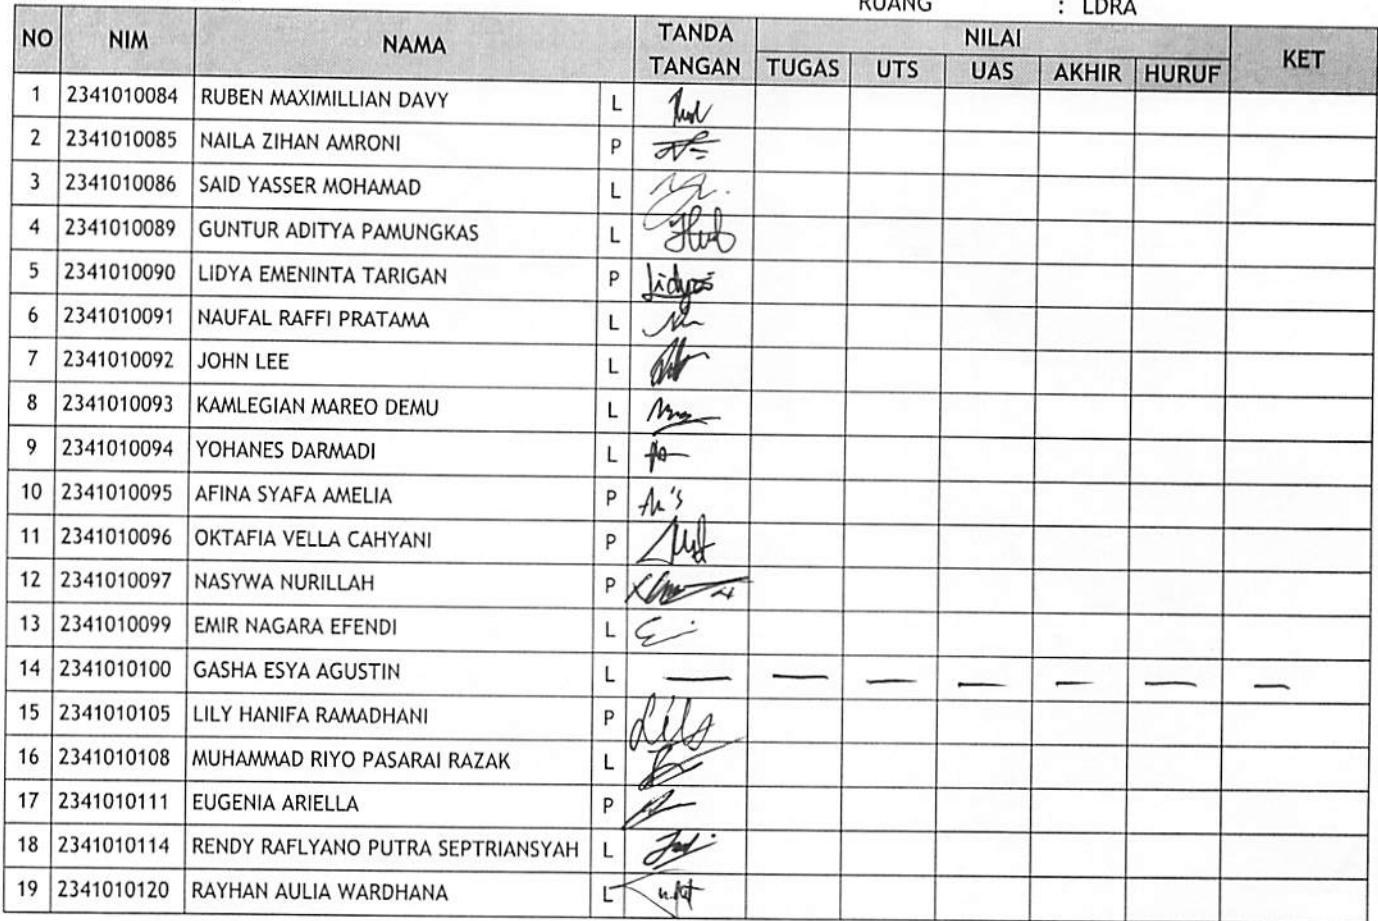 RUANG : LDRA
NO NIM NAMA TANDA TANGAN NILAI KET
TUGAS UTS UAS AKHIR HURUF
1 2341010084 RUBEN MAXIMILLIAN DAVY L
2 2341010085 NAILA ZIHAN AMRONI P
3 2341010086 SAID YASSER MOHAMAD L
4 2341010089 GUNTUR ADITYA PAMUNGKAS L
5 2341010090 LIDYA EMENINTA TARIGAN P
6 2341010091 NAUFAL RAFFI PRATAMA L
7 2341010092 JOHN LEE L
8 2341010093 KAMLEGIAN MAREO DEMU L
9 2341010094 YOHANES DARMADI L
10 2341010095 AFINA SYAFA AMELIA P
11 2341010096 OKTAFIA VELLA CAHYANI P
12 2341010097 NASYWA NURILLAH P
13 2341010099 EMIR NAGARA EFENDI L
14 2341010100 GASHA ESYA AGUSTIN L — — — — — — —
15 2341010105 LILY HANIFA RAMADHANI P
16 2341010108 MUHAMMAD RIYO PASARAI RAZAK L
17 2341010111 EUGENIA ARIELLA P
18 2341010114 RENDY RAFLYANO PUTRA SEPTRIANSYAH L
19 2341010120 RAYHAN AULIA WARDHANA L